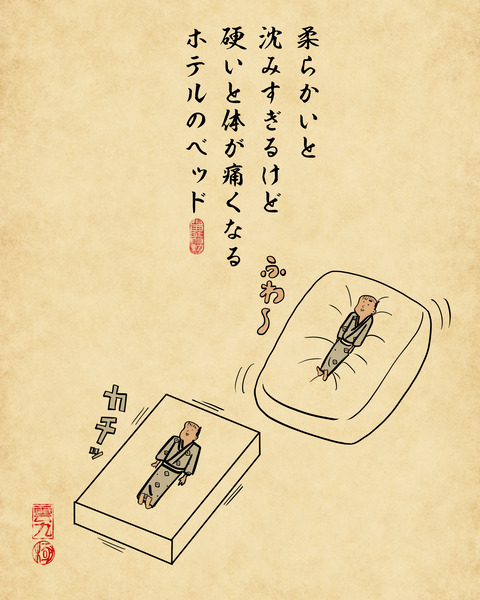 柔らかいと
沈みすぎるけど
硬いと体が痛くなる
ホテルのベッド
ふわ〜
カチッ